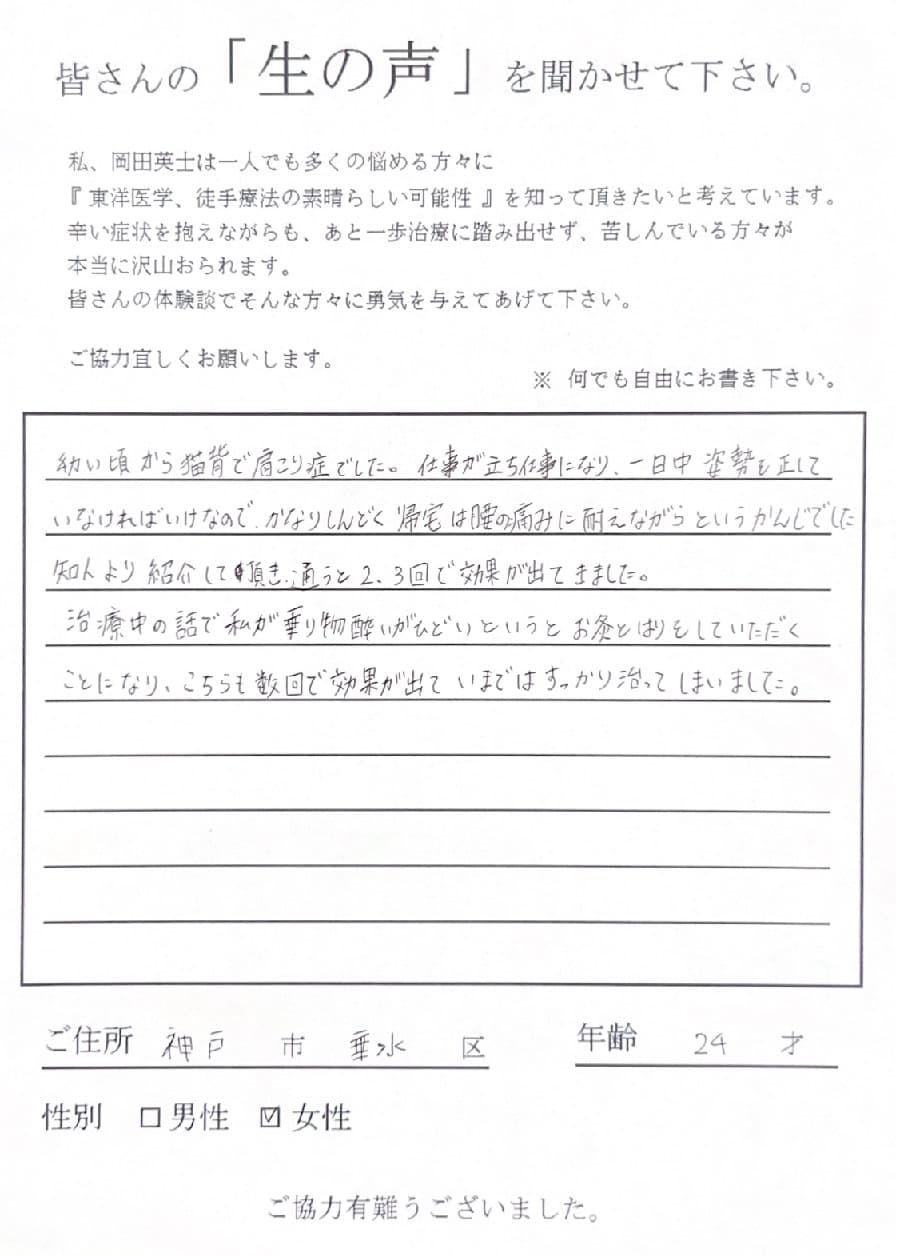 皆さんの「生の声」を聞かせて下さい。
私、岡田英士は一人でも多くの悩める方々に
『 東洋医学、徒手療法の素晴らしい可能性 』を知って頂きたいと考えています。
辛い症状を抱えながらも、あと一歩治療に踏み出せず、苦しんでいる方々が
本当に沢山おられます。
皆さんの体験談でそんな方々に勇気を与えてあげて下さい。
ご協力宜しくお願いします。
※ 何でも自由にお書き下さい。
幼い頃から猫背で肩こり症でした。仕事が立ち仕事になり、一日中 姿勢を正して
いなければいけなので、かなりしんどく 帰宅は腰の痛みに耐えながらというかんじでした
知人より紹介して頂き、通うと2、3回で効果が出てきました。
治療中の話で私が乗り物酔いがひどいというと お灸とはりをしていただく
ことになり、こちらも数回で効果が出て いまではすっかり治ってしまいました。
ご住所 神戸 市 垂水 区 年齢 24 才
性別 □ 男性 ☑ 女性
ご協力有難うございました。